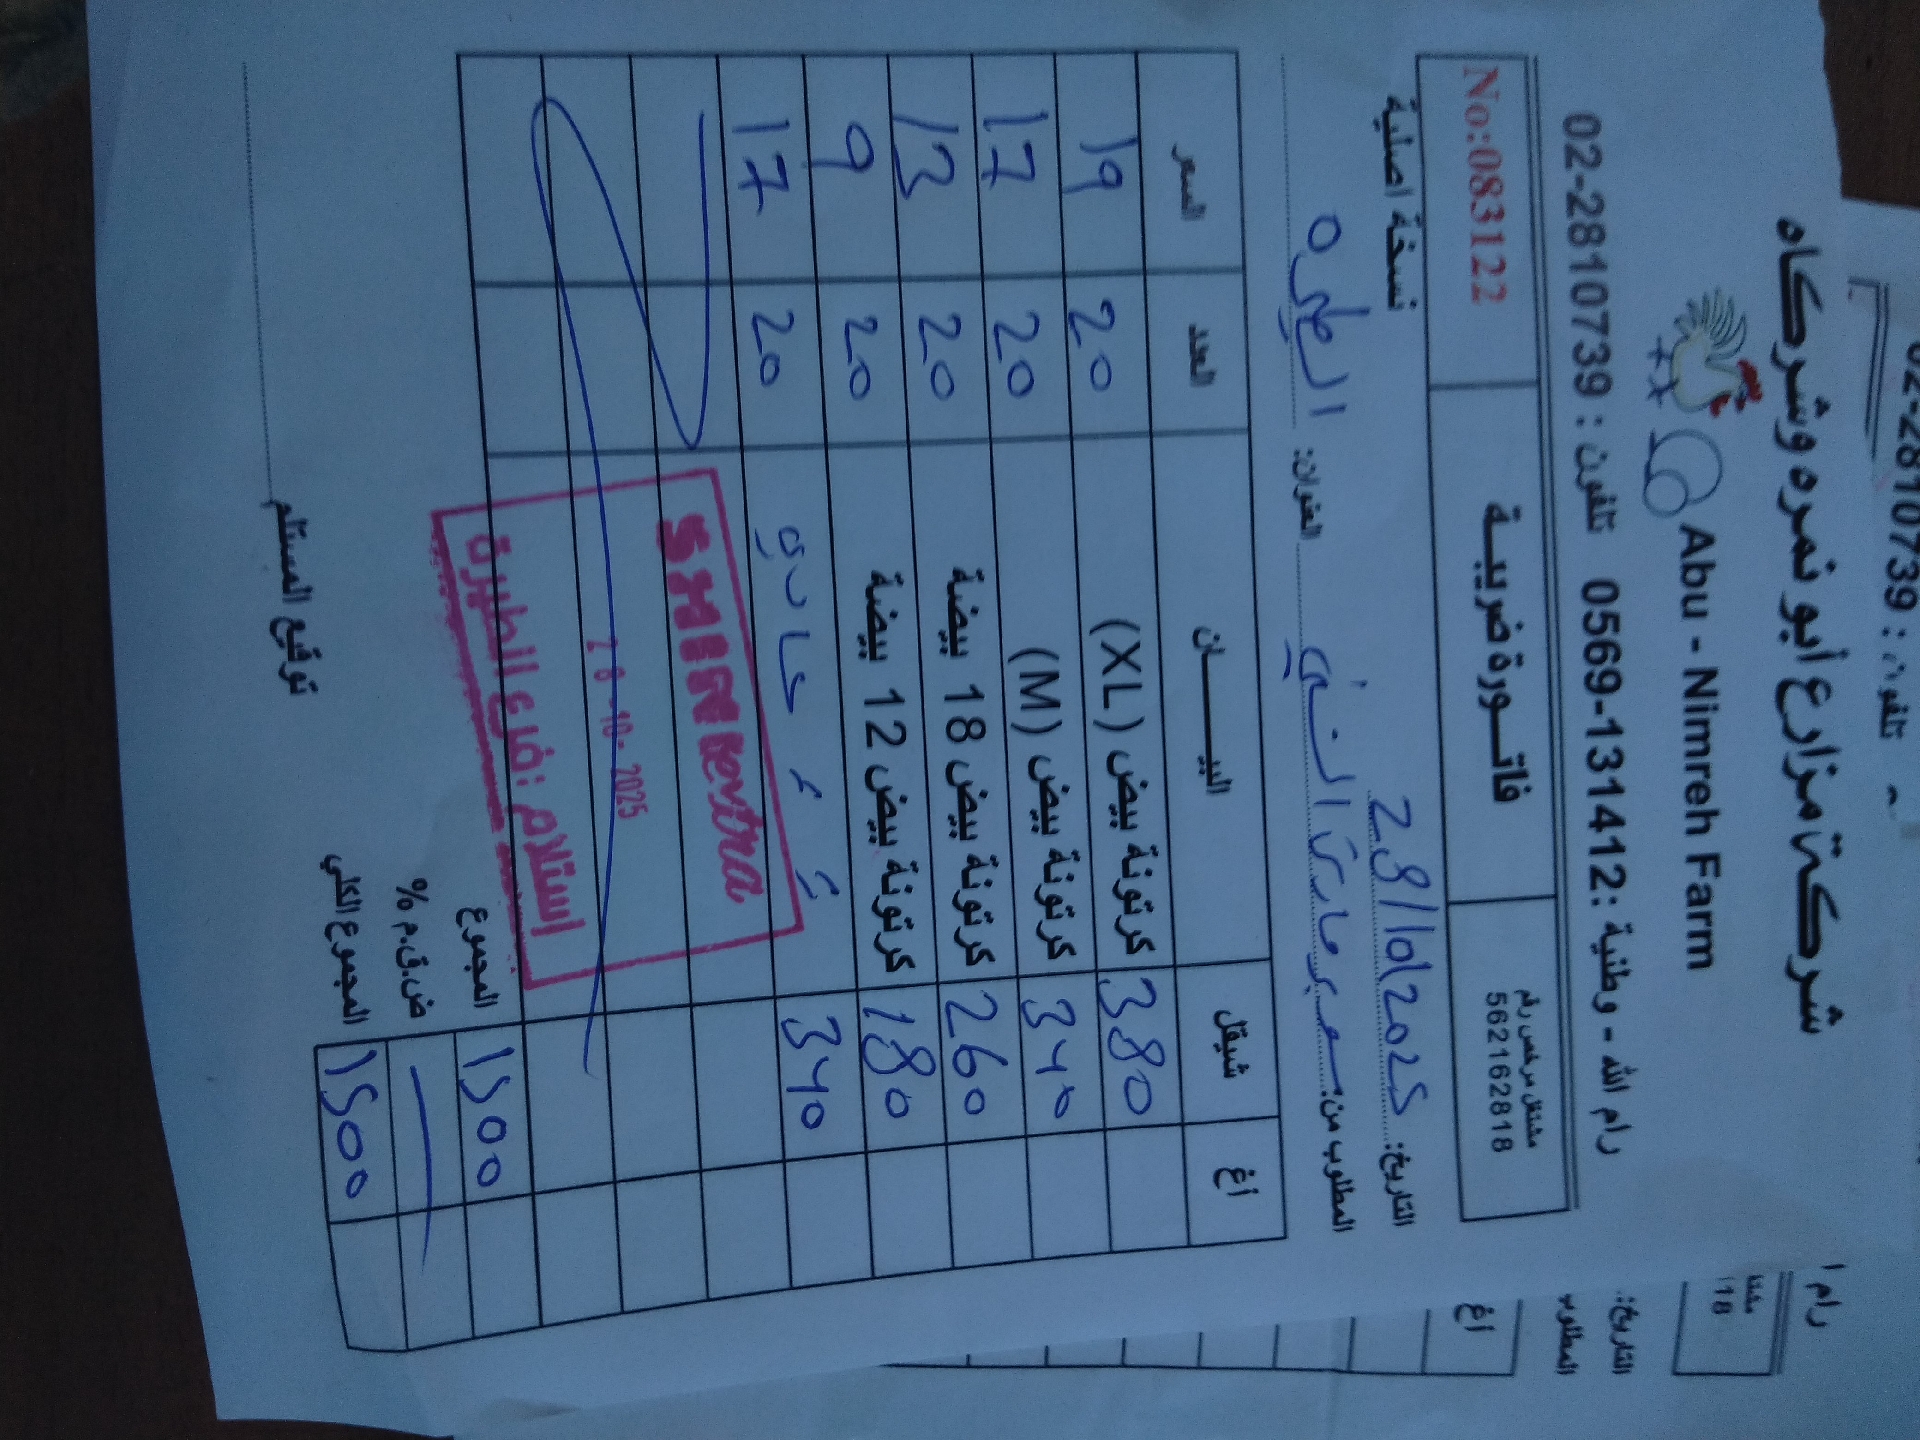 شركة مزارع أبو نمره وشركاه
Abu - Nimreh Farm
رام الله - وطنية : 0569-131412 تلفون : 02-2810739
مشتغل مرخص رقم
562162818
فاتورة ضريبية
No:083122
التاريخ: 28/10/2025
نسخة اصلية
المطلوب من: سوبر ماركت الشني
العنوان: الطيره
أغ شيقل البيـــان العدد السعر
380 كرتونة بيض (XL) 20 19
340 كرتونة بيض (M) 20 17
260 كرتونة بيض 18 بيضة 20 13
180 كرتونة بيض 12 بيضة 20 9
340 عادي 20 17
SHINI extra
28-10-2025
استلام : فرع الطيرة
المجموع 1500
ض.ق.م %
المجموع الكلي 1500
توقيع المستلم
02-2810739 : تلفون
رام ا
مشتغ
18
التاريخ:
المطلوب
أغ